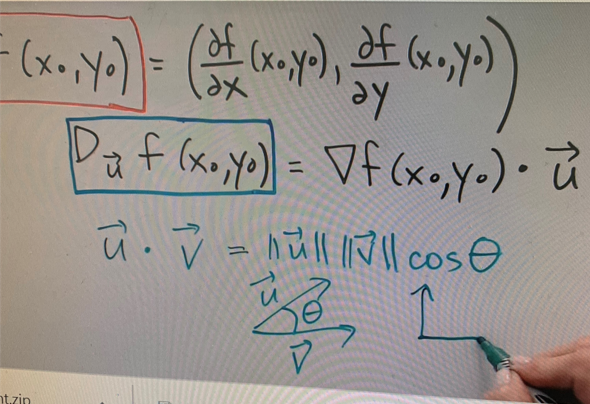 f (x₀,y₀) = (∂f/∂x (x₀,y₀), ∂f/∂y (x₀,y₀))
D_u⃗ f (x₀,y₀) = ∇f (x₀,y₀) · u⃗
u⃗ · v⃗ = ||u⃗|| ||v⃗|| cos θ
u⃗
θ
v⃗
nt.zip